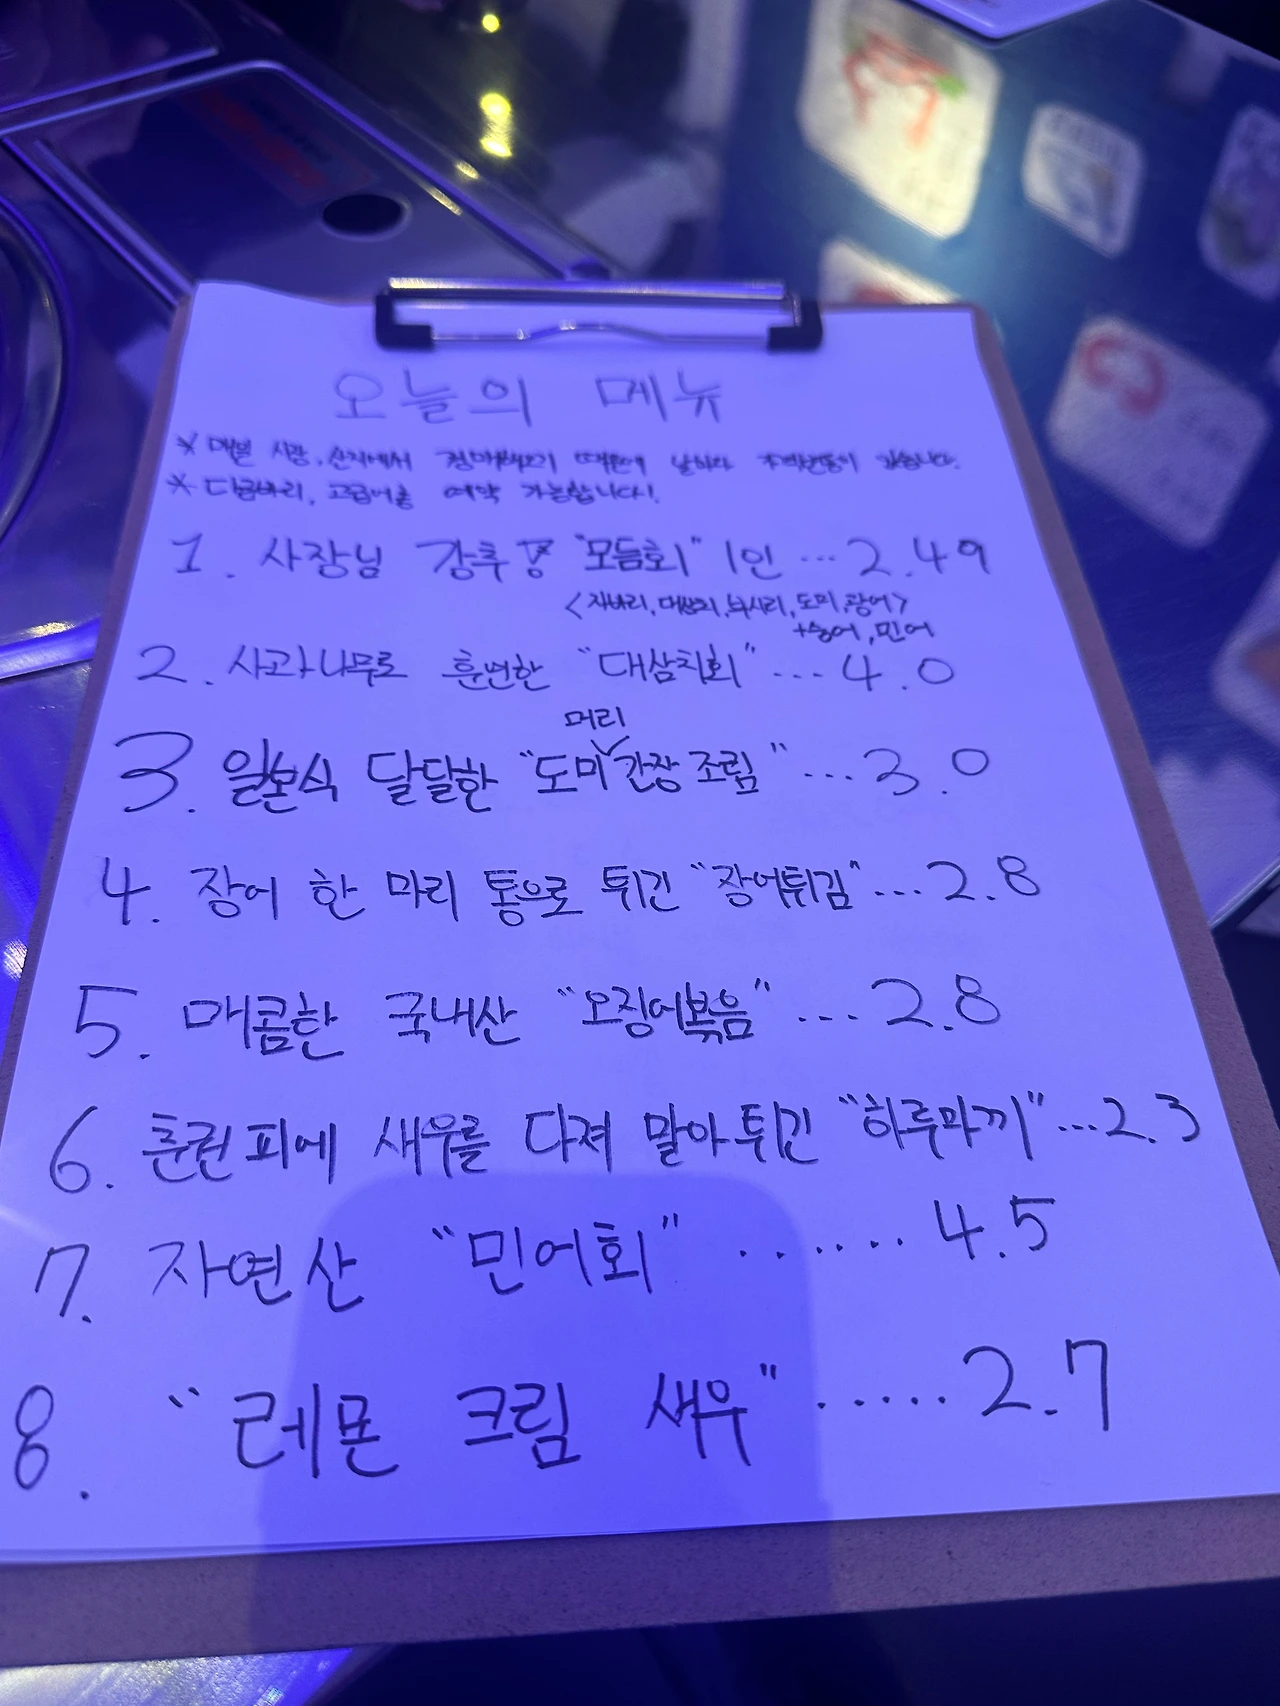 오늘의 메뉴
* 매일 시장, 산지에서 경매해오기 때문에 날마다 가격변동이 있습니다.
* 다금바리, 고급어종 예약 가능합니다!
1. 사장님 강추 "모듬회" 1인 ... 2.49
<자바리, 대삼치, 부시리, 도미, 광어>
+숭어, 민어
2. 사과나무로 훈연한 "대삼치회" ... 4.0
머리
3. 일본식 달달한 "도미 간장 조림" ... 3.0
4. 장어 한 마리 통으로 튀긴 "장어튀김" ... 2.8
5. 매콤한 국내산 "오징어볶음" ... 2.8
6. 춘권피에 새우를 다져 말아 튀긴 "하루마끼" ... 2.3
7. 자연산 "민어회" ....... 4.5
8. "레몬 크림 새우" ..... 2.7